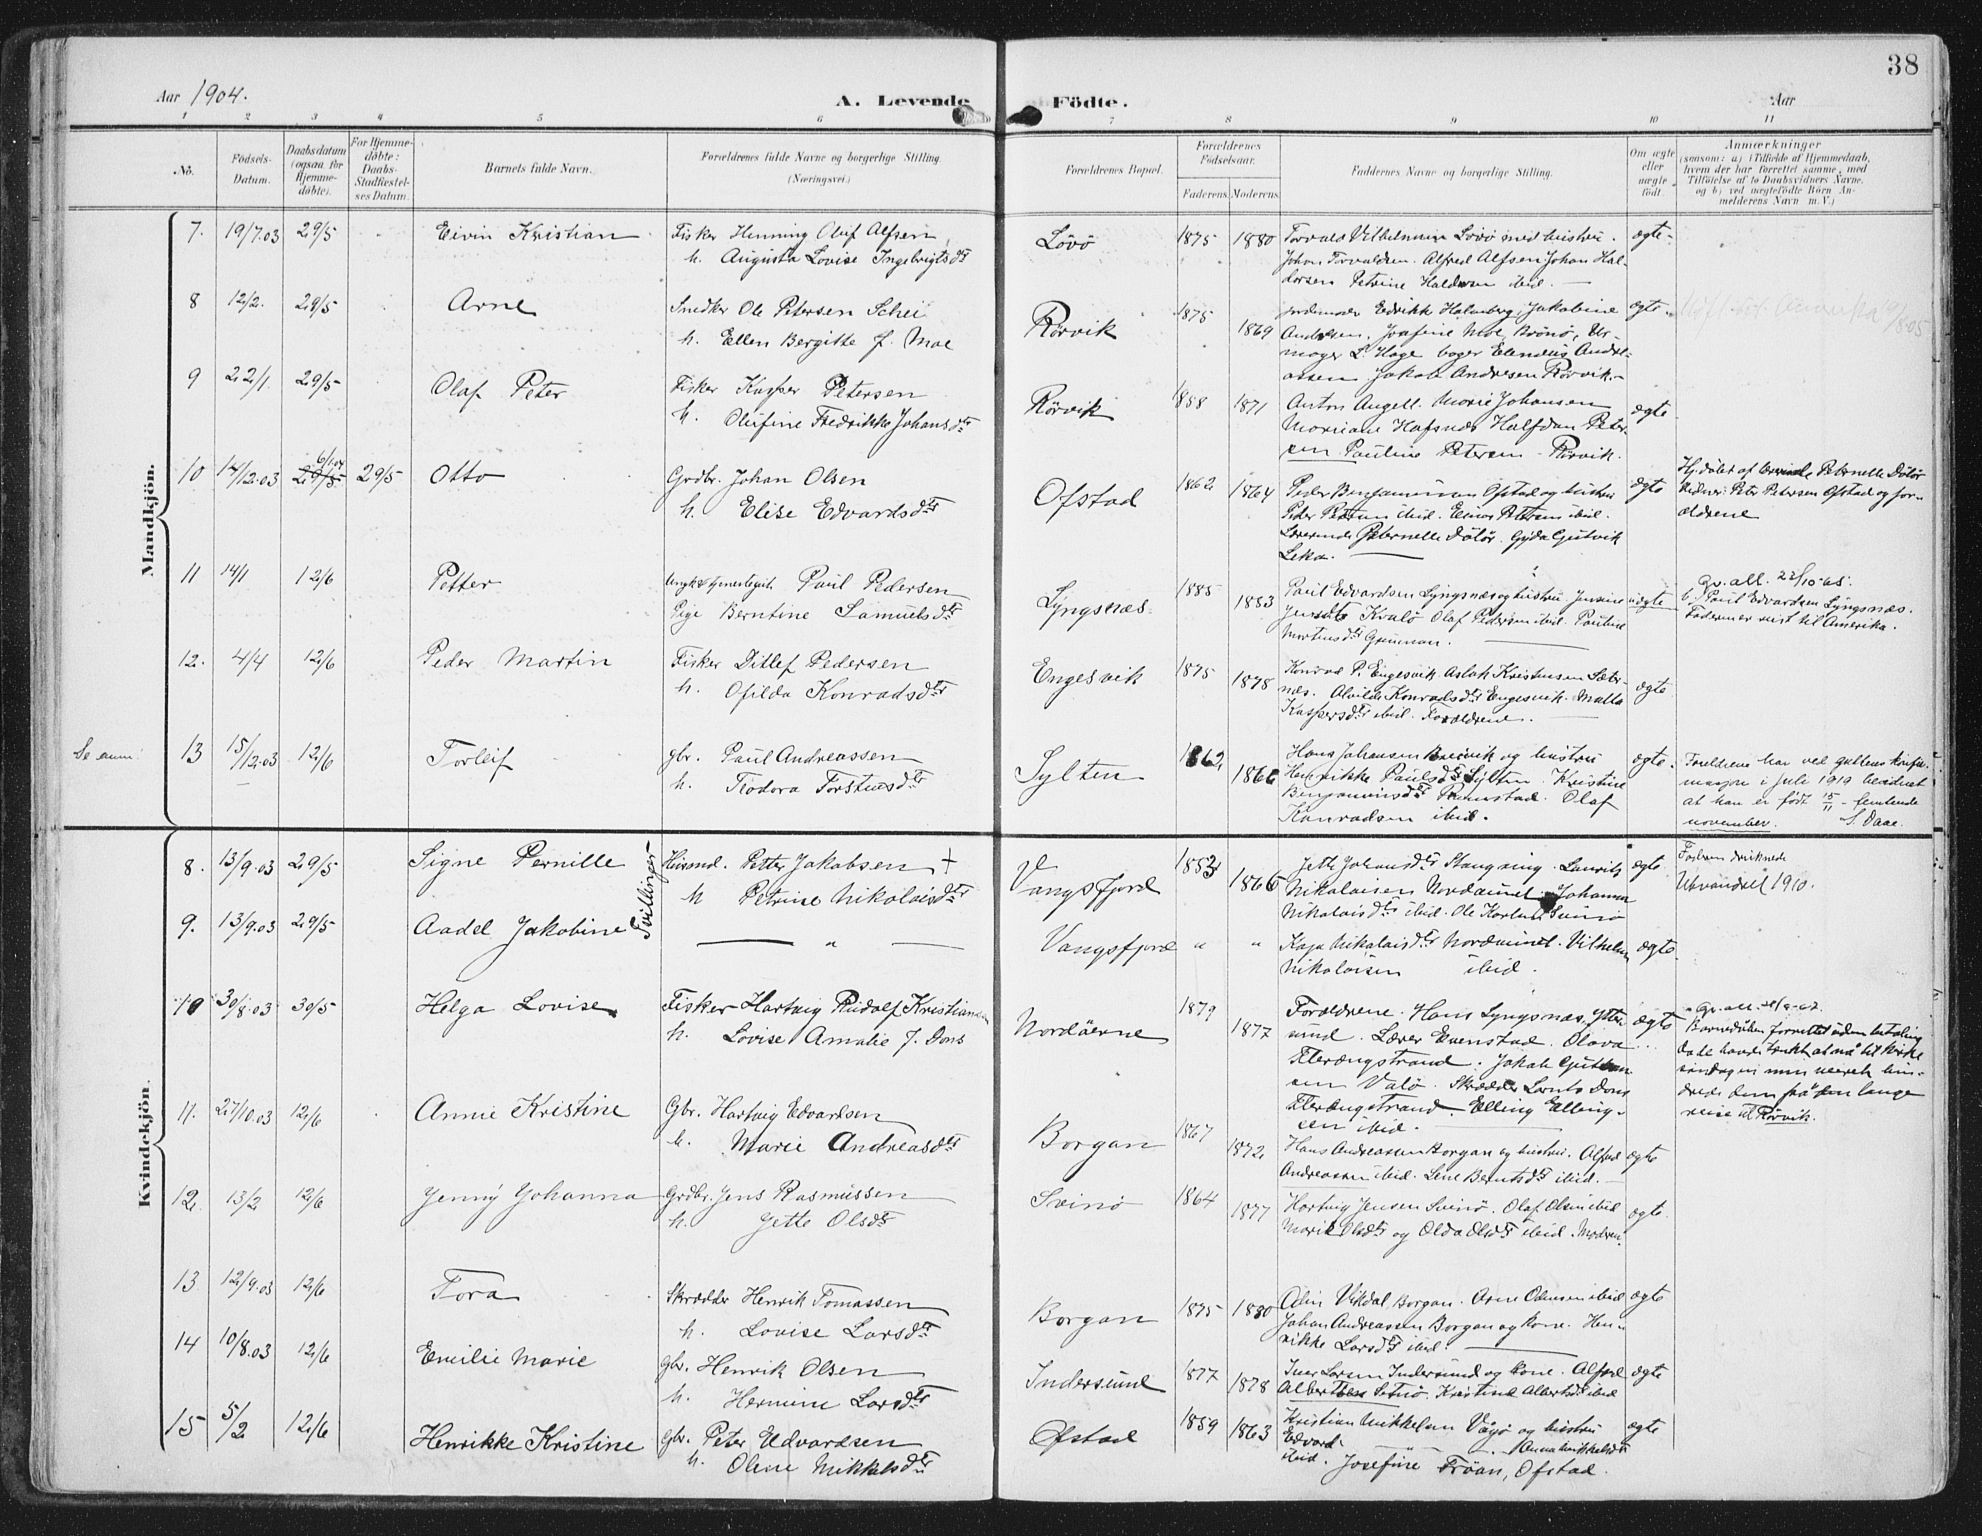 38
Aar 1904.
A. Levende Födte.
Aar
1 2 3 4 5 6 7 8 9 10 11
No.
Fødsels-Datum.
Daabsdatum (ogsaa for Hjemmedøbte).
For Hjemmedøbte: Daabs-Stadfæstelses Datum.
Barnets fulde Navn.
Forældrenes fulde Navne og borgerlige Stilling. (Næringsvei.)
Forældrenes Bopæl.
Forældrenes Fødselsaar.
Faderens Moderens
Faddernes Navne og borgerlige Stilling.
Om ægte eller uægte født.
Anmærkninger
(saasom: a) i Tilfælde af Hjemmedaab, hvem der har forrettet samme, med Tilføielse af to Daabsvidners Navne, og b) ved uægtefødte Børn Anmelderens Navn m. V.)
Mandkjön.
7. 19/7.03 29/5 Eivin Kristian Fisker Henning Oluf Alfsen
h. Augusta Lovise Ingebrigtsdtr
Lövö 1875 1880 Torvald Vilhelmsen Lövö med hustru.
Johan Torvaldsen. Alfred Alfsen Johan Hal-
dorsen Petrine Haldorsen ibid. ægte
8 12/2. 29/5 Arne Snedker Ole Petersen Schei
h. Ellen Bergitte f. Moe
Rörvik 1875 1869 Jordmoder Edrikke Holmberg, Jakobine
Andersen, Josefine Moe, Brönö, Ur-
mager L. Hage bager Elenæus Andre-
assen Jakob Andresen Rörvik. ægte
9 22/1. 29/5 Olaf Peter Fisker Kasper Petersen
h. Olufine Fredrikke Johansdtr
Rörvik 1858 1871 Anton Angell. Marie Johansen
Mariane Hafsnes Halfdan Peter-
sen Pauline Petersen Rörvik. ægte
10 14/12.03 6/1.04 29/5 29/5 Otto Grdbr. Johan Olsen
h. Elise Edvardsdtr
Ofstad 1862 1864 Peder Benjaminsen Ofstad og hustru
Peder Petersen ibid. Einar Petersen ibid.
Lærerinde Peternelle Dölör. Gyda Gutvik
Leka. ægte
Hj.döbt af Lærerinde Peternelle Dölör
Vidner: Peter Petersen Ofstad og for-
ældrene
11 14/1 12/6 Petter Ungk. Paul Pedersen
Pige Berntine Samuelsdtr
Lyngsnæs 1885 1883 Paul Edvardsen Lyngsnæs og hustru Jensine
Jensdtr Kvalö Olaf Pedersen ibid. Pauline
Martinsdtr uægte
Gr. att. 22/10-65.
b.) Paul Edvardsen Lyngsnæs.
Faderen er reist til Amerika.
12. 4/4 12/6 Peder Martin Fisker Ditlef Pedersen
h. Ofilda Konradsdtr
Engesvik 1875 1878 Konrad P. Engesvik Aslak Kristensen Sæter-
næs. Alvilde Konradsdtr Engesvik. Malla
Kaspersdtr ibid. Forældrene. ægte
Se anm. 13 15/12.03 12/6 Torleif gbr. Paul Andreassen
h. Tiodora Torstensdtr
Sylten 1862 1866 Hans Johansen og hustru
Henrikke Paulsdtr Sylten. Kristine
Benjaminsdtr Ramstad. Olaf
Konradsen ibid. ægte
Foreldrene har ved guttens konfir-
masjon i juli 1919 bevidnet
at han er født 15/11 - femtende
november. S. Daae.
Kvindekjön.
8. 13/9.03 29/5 Signe Pernille Tvillinger Husmd. Petter Jakobsen +
h Petrine Nikolaisdtr
Vangsfjord 1853 1866 Jette Johansdtr Laurits
Nikolaisen Nordsund. Johanna
Nikolaisdtr ibid. Ole Karlsen Svinö ægte
Faderen druknede
Utvandret 1910.
9. 13/9.03 29/5 Aadel Jakobine — " —
Vangsfjord " " Kaja Nikolaisdtr Nordsund. Vilhelm
Nikolaisen ibid. ægte.
10 30/8.03 30/5 Helga Lovise Fisker Hartvig Rudolf Kristiansen
h. Lovise Amalie f. Dons
Nordöerne 1879 1877 Forældrene. Hans Lyngsnæs, Ytter-
sund. Lærer Evenstad. Olava
Flerængstrand. Jakob
sen Valö. Skrædder Lents Dons
Flerængstrand. Elling Elling-
sen ibid. ægte
Barnedåben forrettet uden betaling
da de havde tænkt at nå til kirke
søndag vi men veiret hin-
drede dem på den lange
reise til Rörvik.
11. 27/10.03 12/6 Annie Kristine Gbr. Hartvig Edvardsen
h. Marie Andreasdtr
Borgan 1867 1872 Hans Andreassen Borgan og hustru. Alfred
Andreassen ibid. Lene Berntsdtr ibid. ægte
12. 13/2 12/6 Jenny Johanna Grdbr. Jens Rasmussen
h. Jette Olsdtr
Svinö 1864 1877 Hartvig Jensen Svinö. Olaf Olsen ibid
Marit Olsdtr og Olda Olsdtr ibid. Moderen. ægte.
13. 12/9.03 12/6 Tora Skrædder Henrik Tomassen
h. Lovise Larsdtr
Borgan 1875 1880 Odin Vikdal, Borgan. Arne Odinsen ibid
Johan Andreassen Borgan og kone. Hen-
rikke Larsdtr ibid. ægte
14 10/8.03 12/6 Emilie Marie gbr. Henrik Olsen
h. Hermine Larsdtr
Indersund 1877 1878 Iver Larsen Indersund og kone. Alfred
Albertsen Svinö. Kristine Albertsdtr ibid ægte
15 5/2 12/6 Henrikke Kristine gbr. Peter Edvardsen
h. Oline Mikkelsdtr
Ofstad 1859 1863 Kristian Mikkelsen Vågö og hustru
Edvard Anna Mikkelsdtr
ibid. Josefine Fröan, Ofstad. ægte